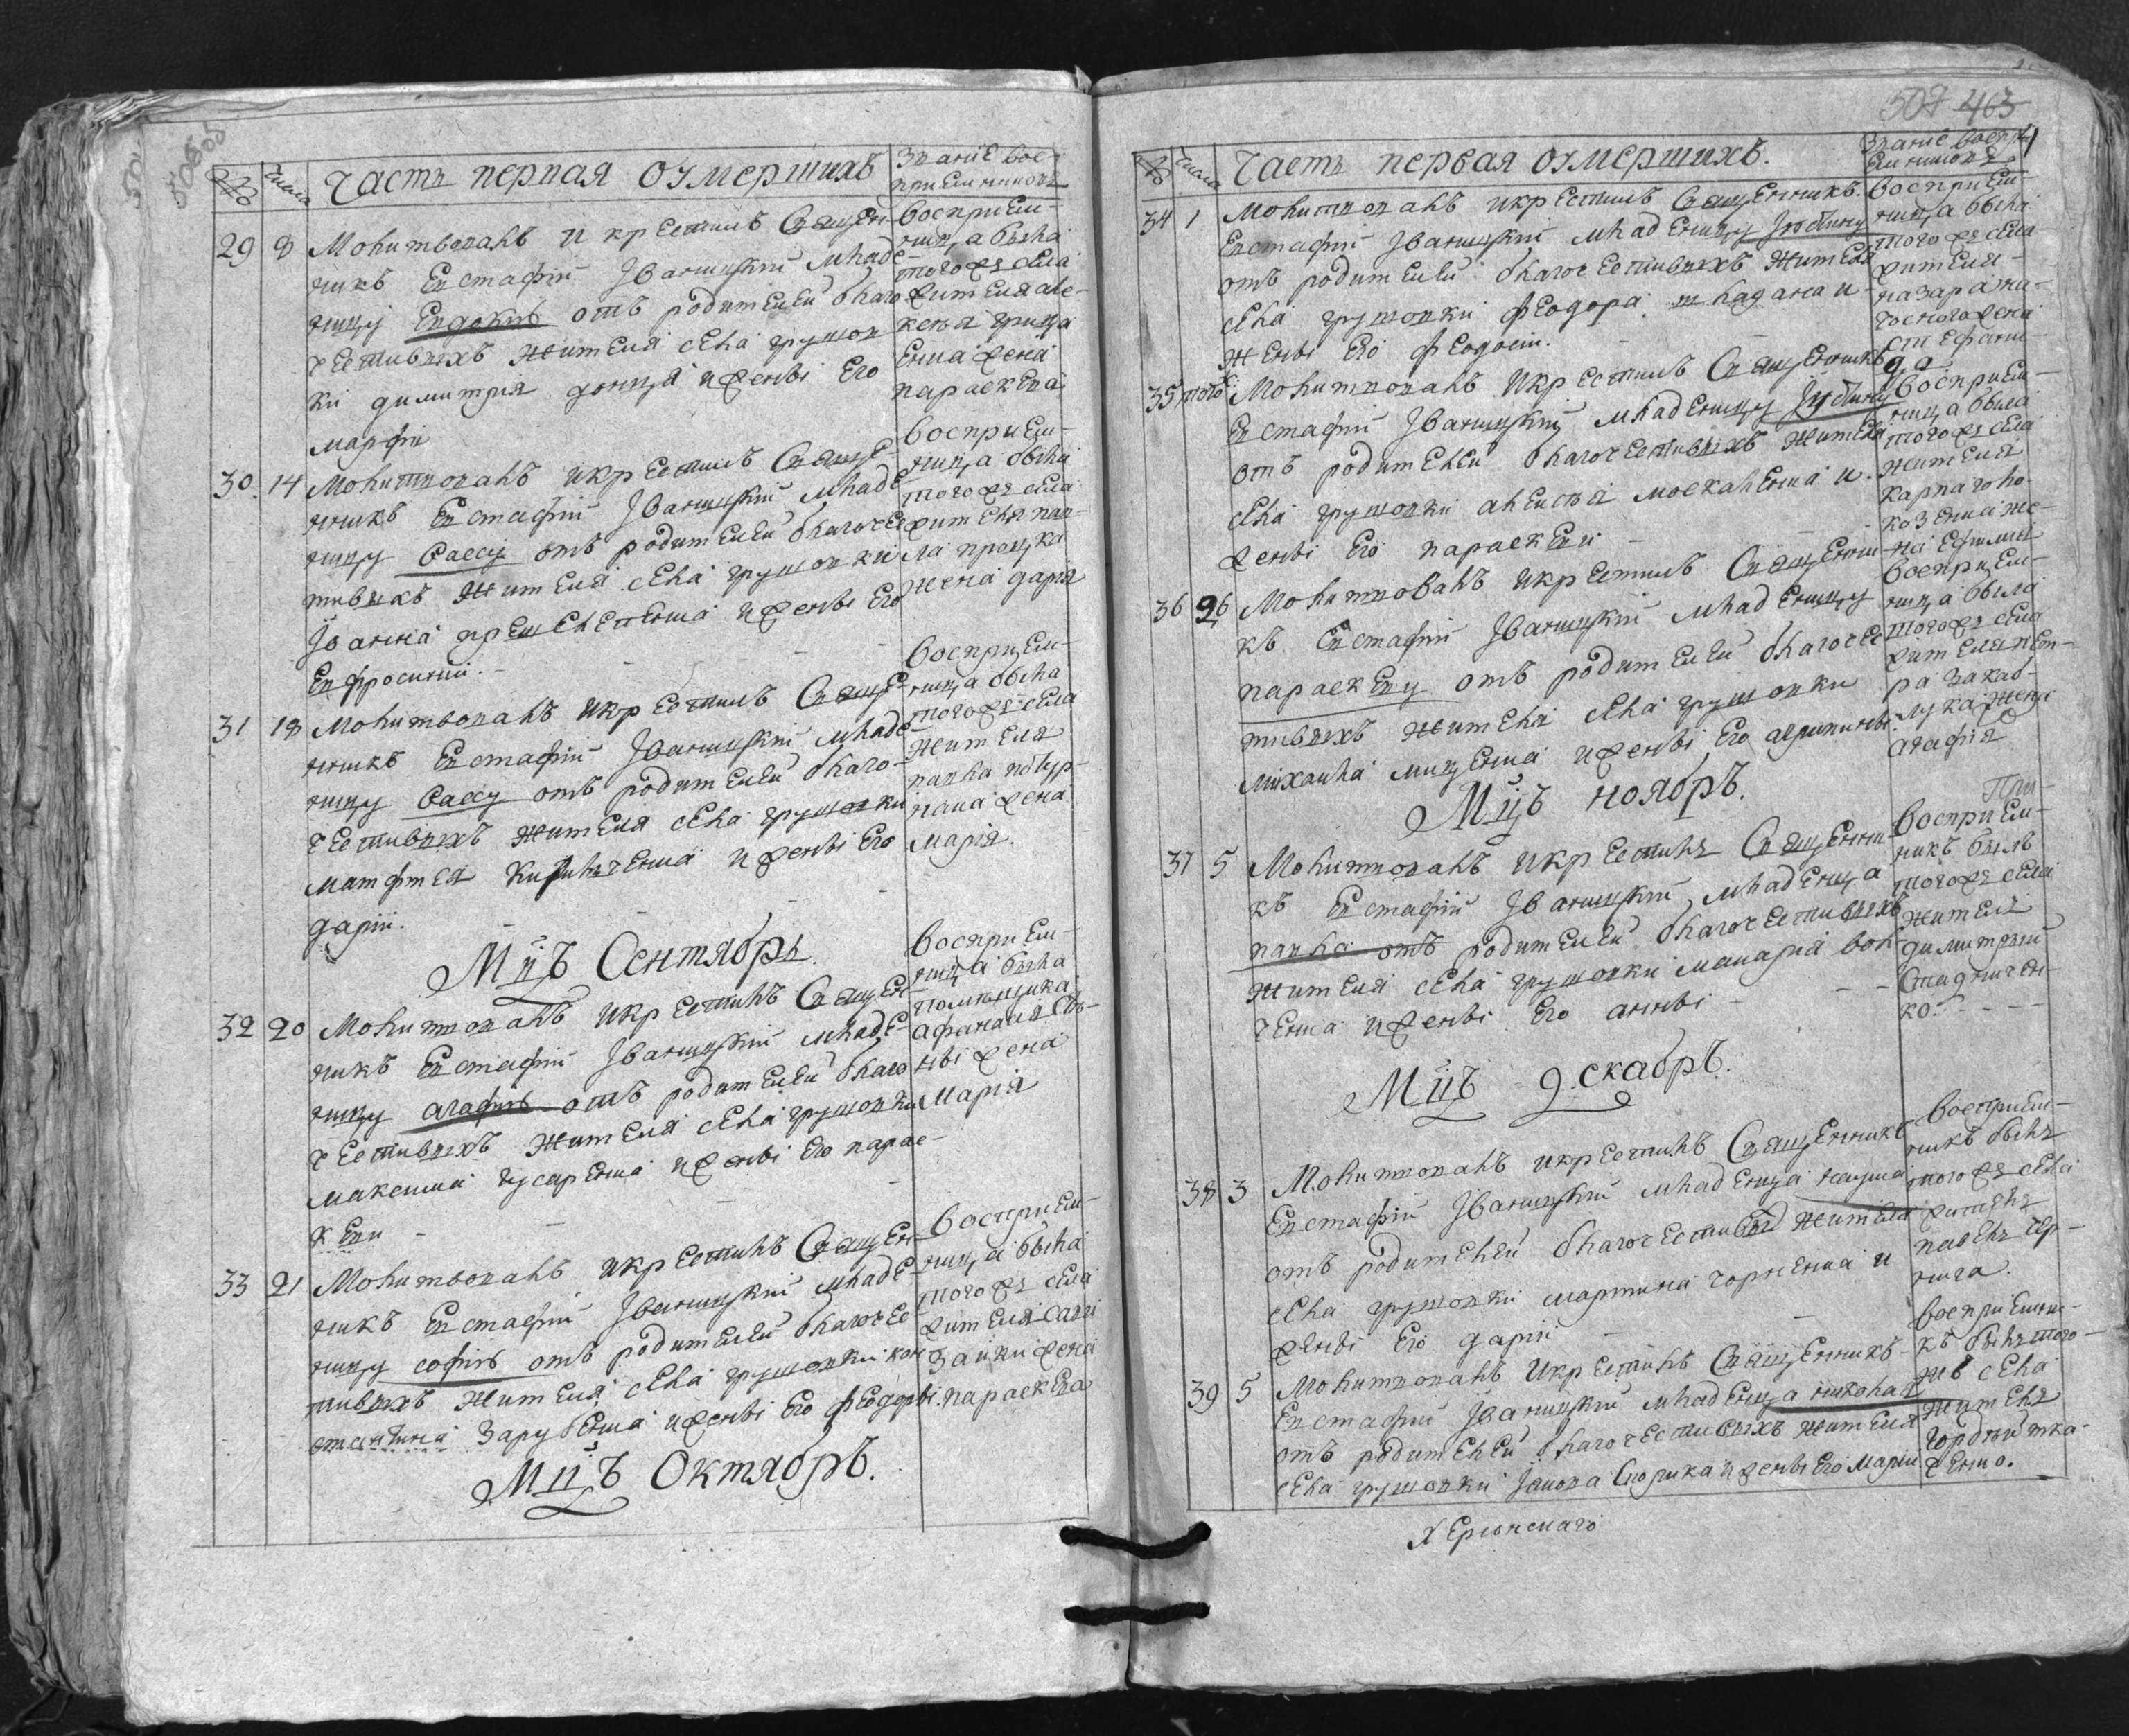 Числа
Часть первая оумершихъ
Званіе вос-
приемниковъ
29 8 Молитвовалъ и крестилъ Священ-
никъ Евстафій Іваницкій младе-
ницу Евдокію отъ родителей благо
честивыхъ жителя села грушов
ки димитрія донца и жены его
марфи
восприем-
ница была
того жъ села
жителя але-
грица
жена
параскева
30. 14 Молитвовалъ и крестилъ Свяще-
нникъ Евстафій Іваницкій младе-
ницу отъ родителей благочес
тивыхъ жителя села грушовки
Іоанна и жены его
Евфросинии.
восприем-
ница была
того жъ села
жителя пав-
ла процка
жена дарія
31 18 Молитвовалъ и крестилъ Свяще-
нникъ Евстафій Іваницкій младе-
ницу отъ родителей благо-
честивыхъ жителя села грушовки
матфея Кириченка и жены его
даріи.
восприем-
ница была
того жъ села
жителя
павла
жена
марія.
Мцъ Сентябръ.
32 20 Молитвовалъ и крестилъ Священ
никъ Евстафій Іваницкій младе-
ницу агафію отъ родителей благо
честивыхъ жителя села грушовки
максима гусаренка и жены его парас-
кеви
восприем-
ница была
помещика
афанасія
жена
Марія
33 21 Молитвовалъ и крестилъ Священ-
никъ Евстафій Іваницкій младе-
ницу софію отъ родителей благочес
тивыхъ жителя села грушовки кон
стантина Зарубенка и жены его феодоры.
восприем-
ница была
того жъ села
жителя савы
Зайки жена
параскева
Мцъ Октябръ.
507 463
Числа
Часть первая оумершихъ.
Званіе воспри
емниковъ
34 1 Молитвовалъ и крестилъ Священникъ.
Евстафій Іваницкій младеницу Іустину
отъ родителей благочестивыхъ жителя
села грушовки феодора и
жены его феодосіи.
восприем-
ница была
того жъ села
жителя
назара
жена
35 того Молитвовалъ и крестилъ Священникъ
Евстафій Іваницкій младеницу Іустину
отъ родителей благочестивыхъ жителя
села грушовки алексѣя москаленка и
жены его параскеви
восприем-
ница была
того жъ села
жителя
карпа
же-
на
36 26 Молитвовалъ и крестилъ Священни-
къ Евстафій Іваницкій младеницу
параскеву отъ родителей благочес
тивыхъ жителя села грушовки
михаила миценка и жены его агрипины.
восприем-
ница была
того жъ села
жителя пет-
ра закаб-
лука жена
агафія
Мцъ ноябръ.
37 5 Молитвовалъ и крестилъ Священни
къ Евстафій Іваницкій младенца
павла отъ родителей благочестивыхъ
жителя села грушовки макарія вов
ченка и жены его анны
При-
восприем-
никъ былъ
того жъ села
житель
димитрій
Стадничен-
ко.
Мцъ декабръ.
38 3 Молитвовалъ и крестилъ Священникъ
Евстафій Іваницкій младенца наума
отъ родителей благочестивы жителя
села грушовки мартина чорненка и
жены его даріи
восприем-
никъ былъ
того жъ села
житель
павелъ чер-
нига.
39 5 Молитвовалъ и крестилъ Священникъ
Евстафій Іваницкій младенца николая
отъ родителей благочестивыхъ жителя
села грушовки Іакова и жены его Маріи
восприемни-
къ былъ того
жъ села
житель
гордѣй тка-
ченко.